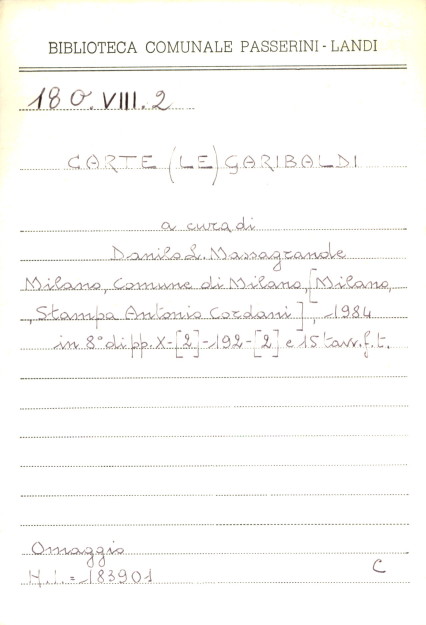 BIBLIOTECA COMUNALE PASSERINI - LANDI
180.VIII.2
CARTE (LE) GARIBALDI
a cura di
Danilo L. Massagrande
Milano, Comune di Milano, [Milano,
, Stampa Antonio Cordani], 1984
in 8° di pp. X-[2]-192-[2] e 15 tavv. f. t.
Omaggio
N.i. = 183901
C